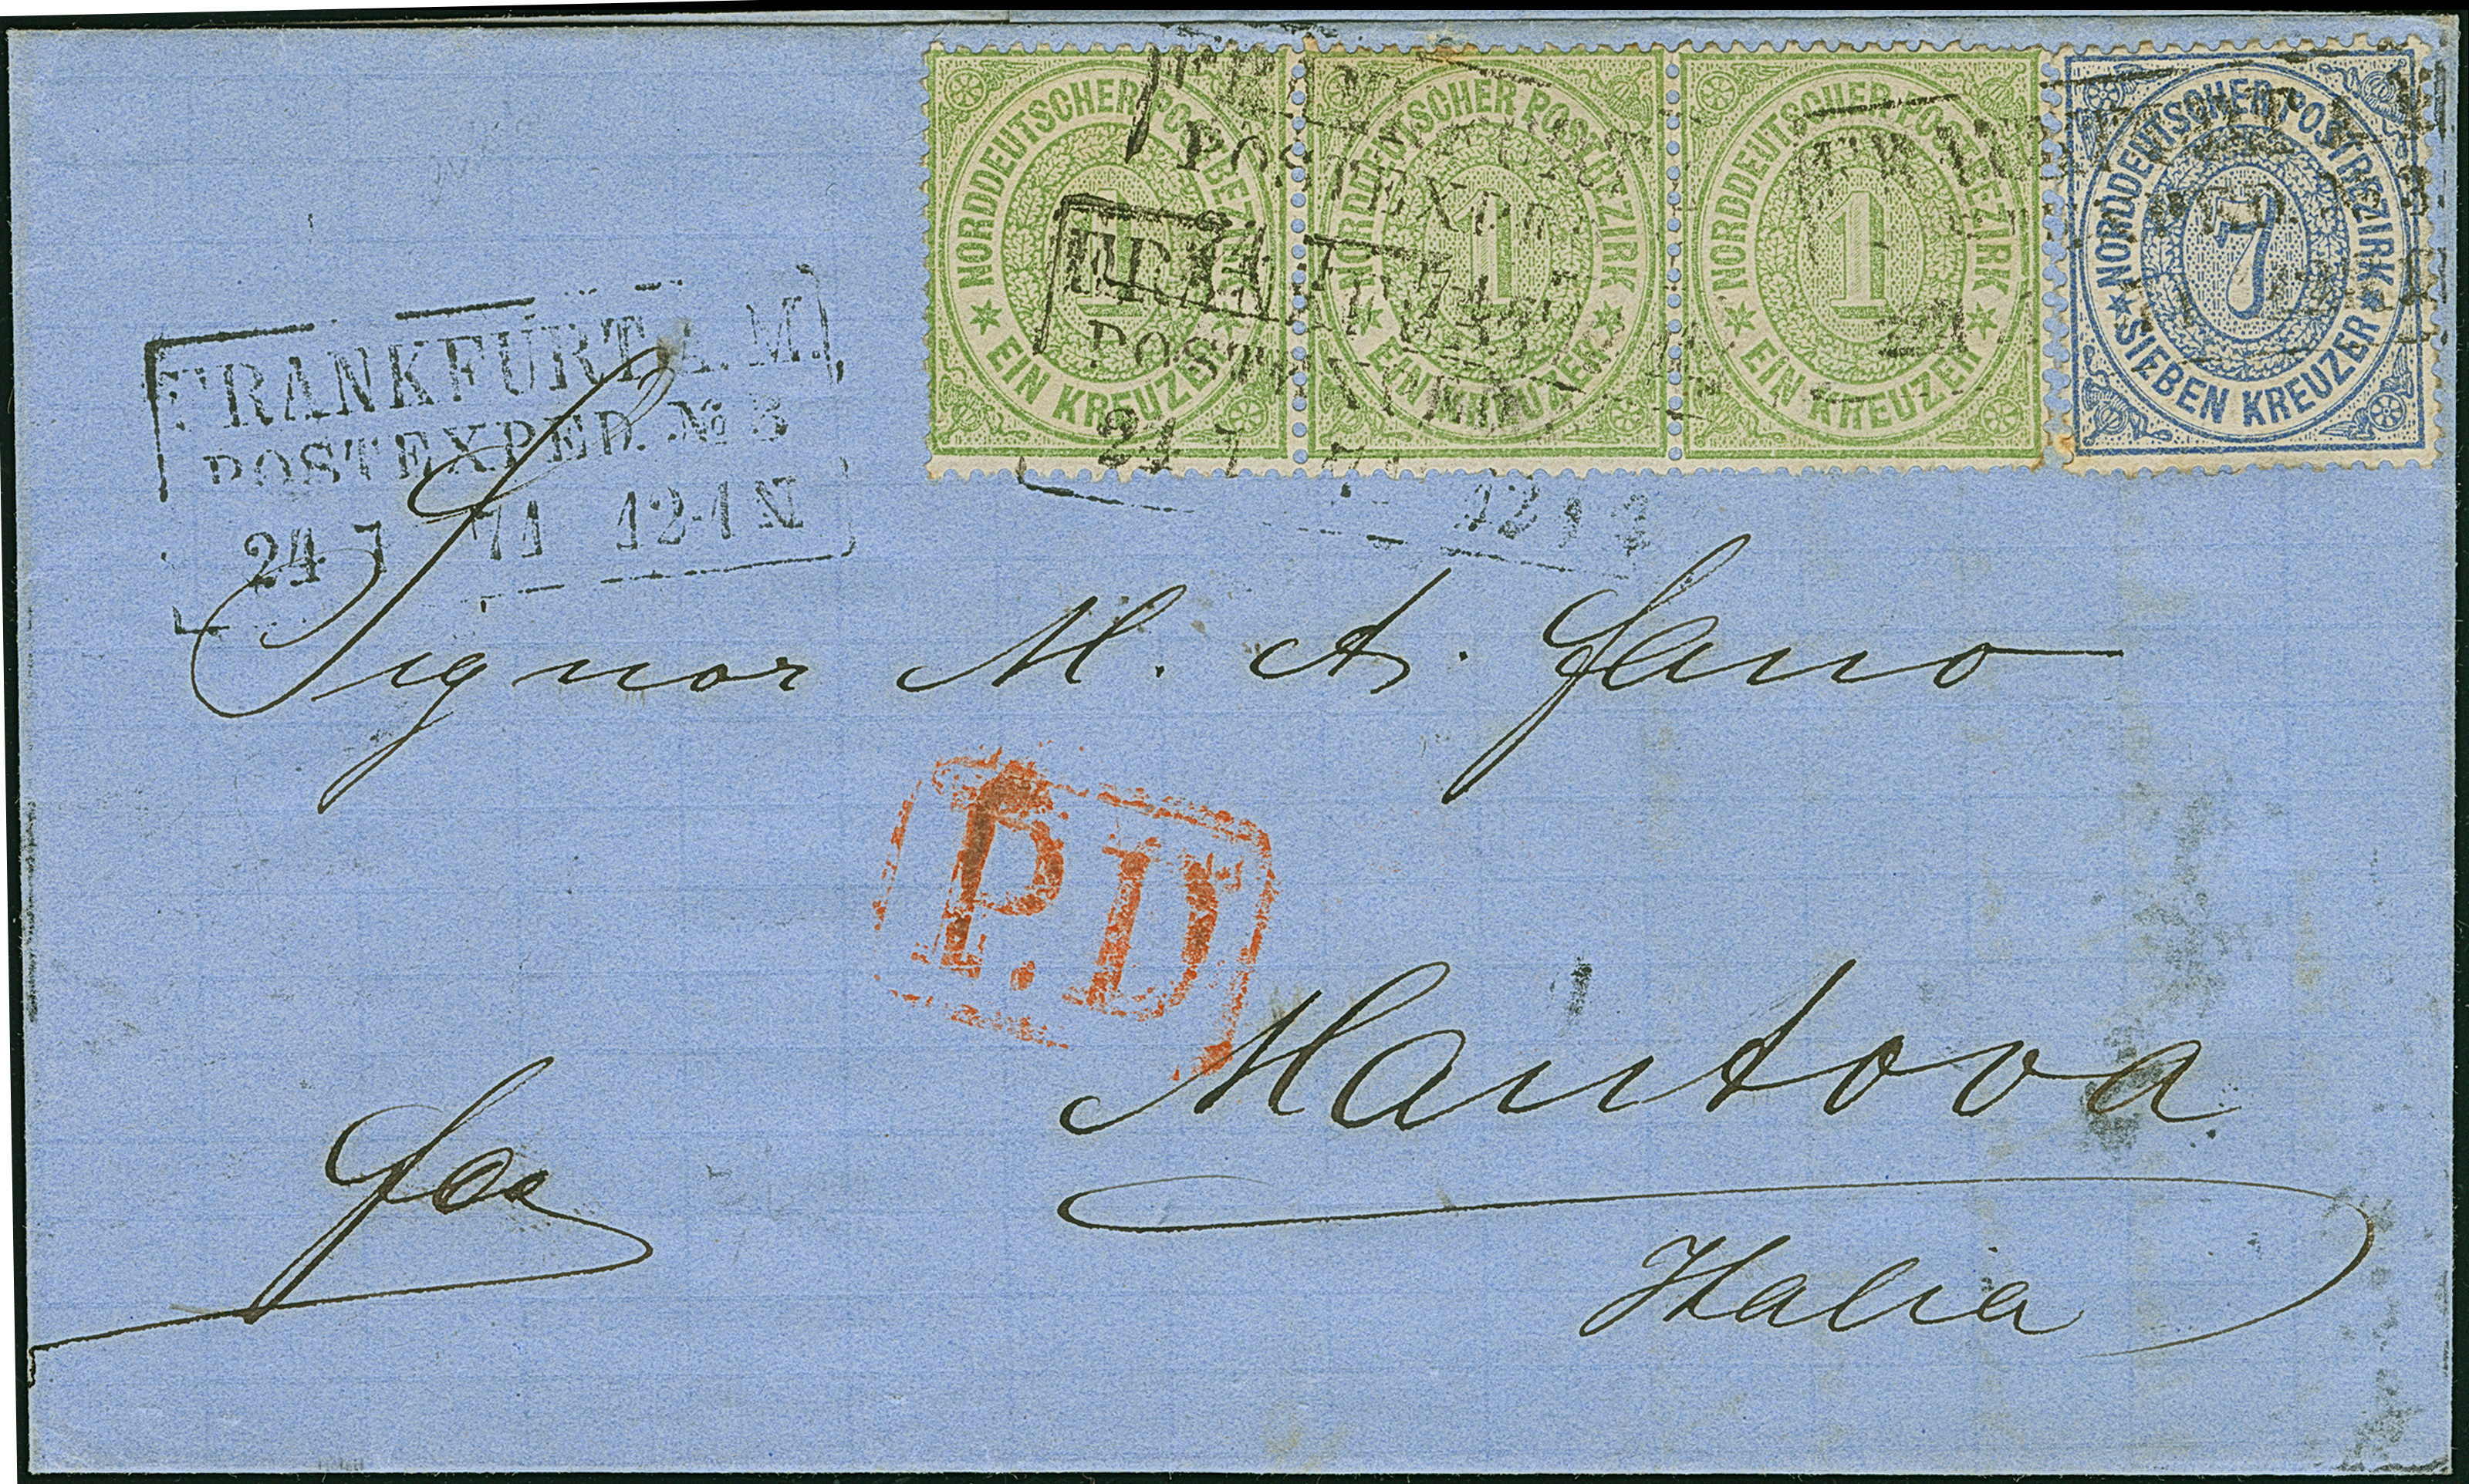 NORDDEUTSCHER POSTBEZIRK
EIN KREUZER
1
NORDDEUTSCHER POSTBEZIRK
EIN KREUZER
1
NORDDEUTSCHER POSTBEZIRK
EIN KREUZER
1
NORDDEUTSCHER POSTBEZIRK
SIEBEN KREUZER
7
FRANKFURT A. M.
POSTEXPED. № 3
24 7 71 12-1 N
Signor M. A. Fano
P.D
Mantova
Italia